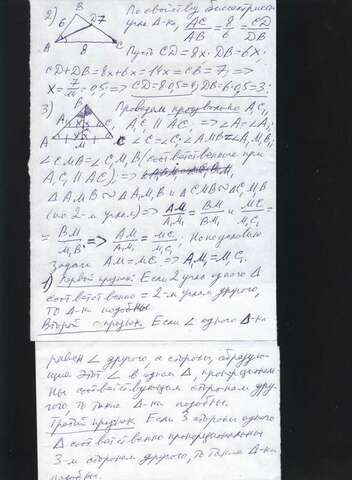 2) B По свойству биссектрисы
6 D 7 угла Δ-ка, AC/AB = 8/6 = CD/DB
A 8 C Пусть CD=8x. DB=6x.
CD+DB=8x+6x=14x=CB=7; =>
x=7/14=0,5; => CD=8·0,5=4; DB=6·0,5=3;
3) B Проведем произвольно A₁C₁,
A₁C₁ ∥ AC, => ∠A=∠A₁
A M C ∠C=∠C₁; ∠AMB=∠A₁M₁B;
∠CMB=∠C₁M₁B (соответственные при
A₁C₁ ∥ AC) =>
ΔAMB ~ ΔA₁M₁B и ΔCMB ~ ΔC₁M₁B
(по 2-м углам) => AM/A₁M₁ = BM/BM₁ и MC/M₁C₁ =
= BM/M₁B => AM/A₁M₁ = MC/M₁C₁; Но по условию
задачи AM=MC => A₁M₁=M₁C₁
1) Первый признак: Если 2 угла одного Δ
соответственно = 2-м углам другого,
то Δ-ки подобны
Второй признак. Если ∠ одного Δ-ка
равен ∠ другого, а стороны, образую-
щие этот ∠ в одном Δ, пропорциональ-
ны соответствующим сторонам дру-
гого, то такие Δ-ки подобны.
Третий признак. Если 3 стороны одного
Δ соответственно пропорциональны
3-м сторонам другого, то такие Δ-ки
подобны.